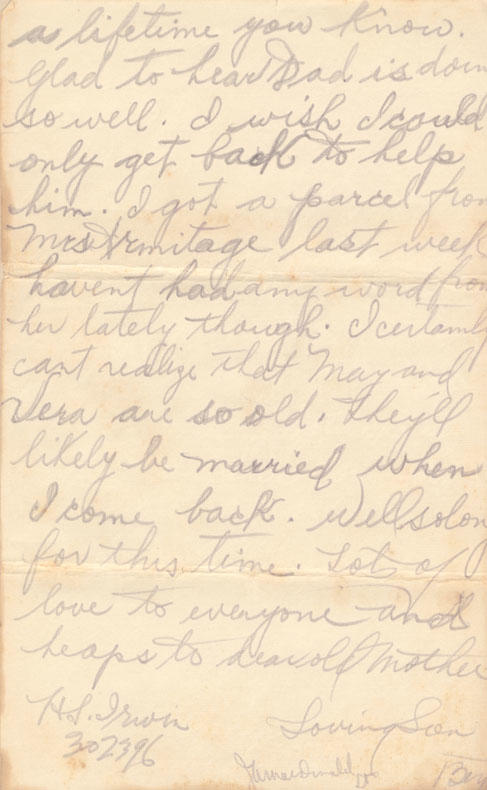 a lifetime you know.
Glad to hear Dad is doin
so well. I wish I could
only get back to help
him. I got a parcel from
Mrs Armitage last week
havent had any word from
her lately though. I certainly
cant realize that May and
Vera are so old. They'll
likely be married when
I come back. Well solong
for this time. Lots of
love to everyone and
heaps to dear old Mother
H.S. Irwin
302396
Loving Son